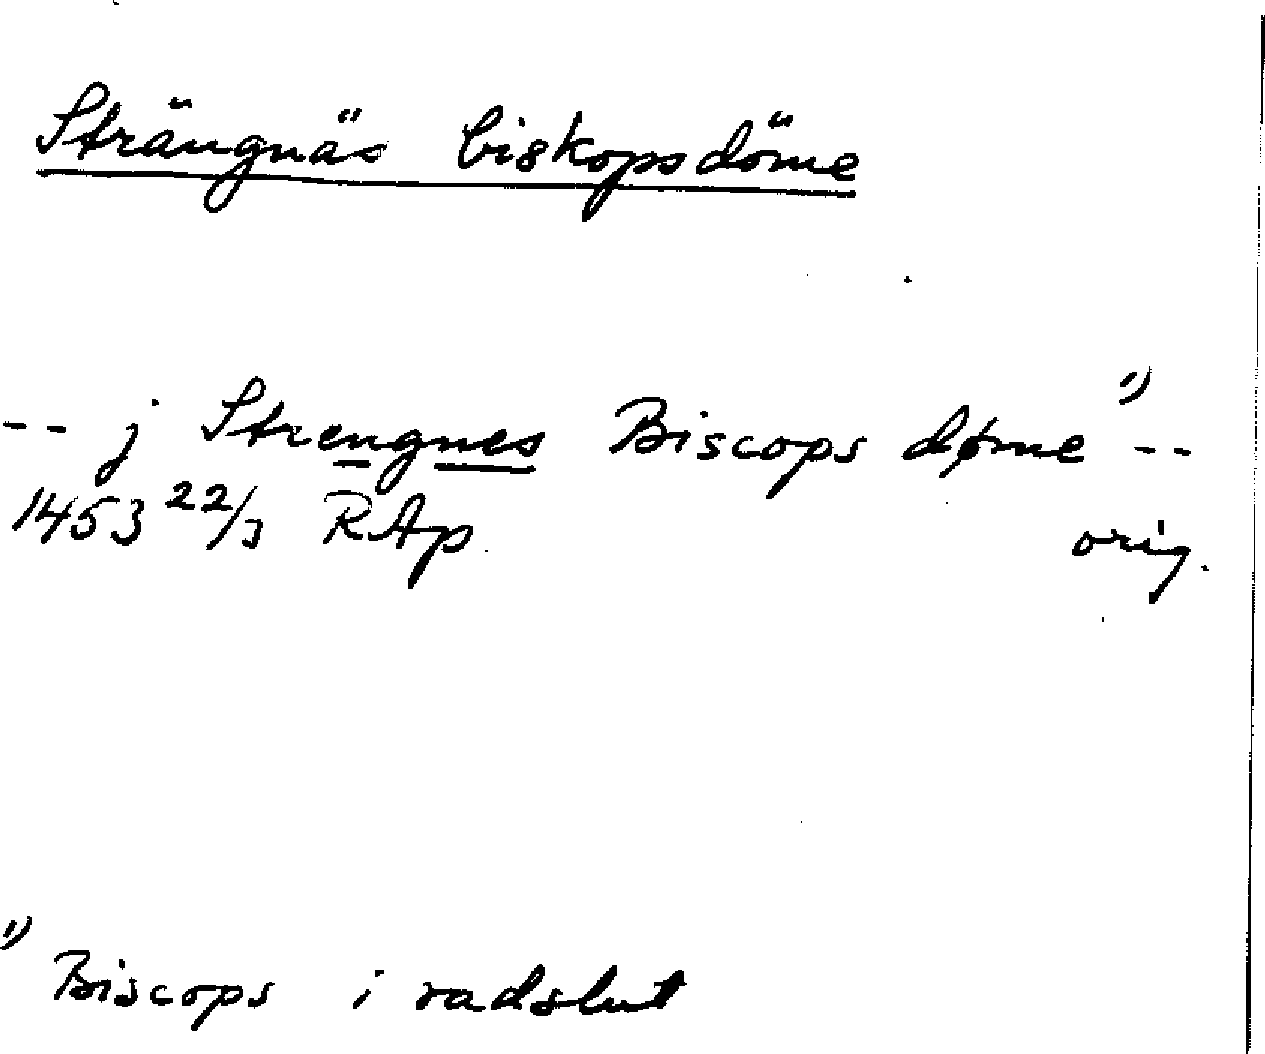 Strängnäs biskopsdöme
-- j Strengnes Biscops døme 1) --
1453 22/3 RAp orig.
1) Biscops i radslut